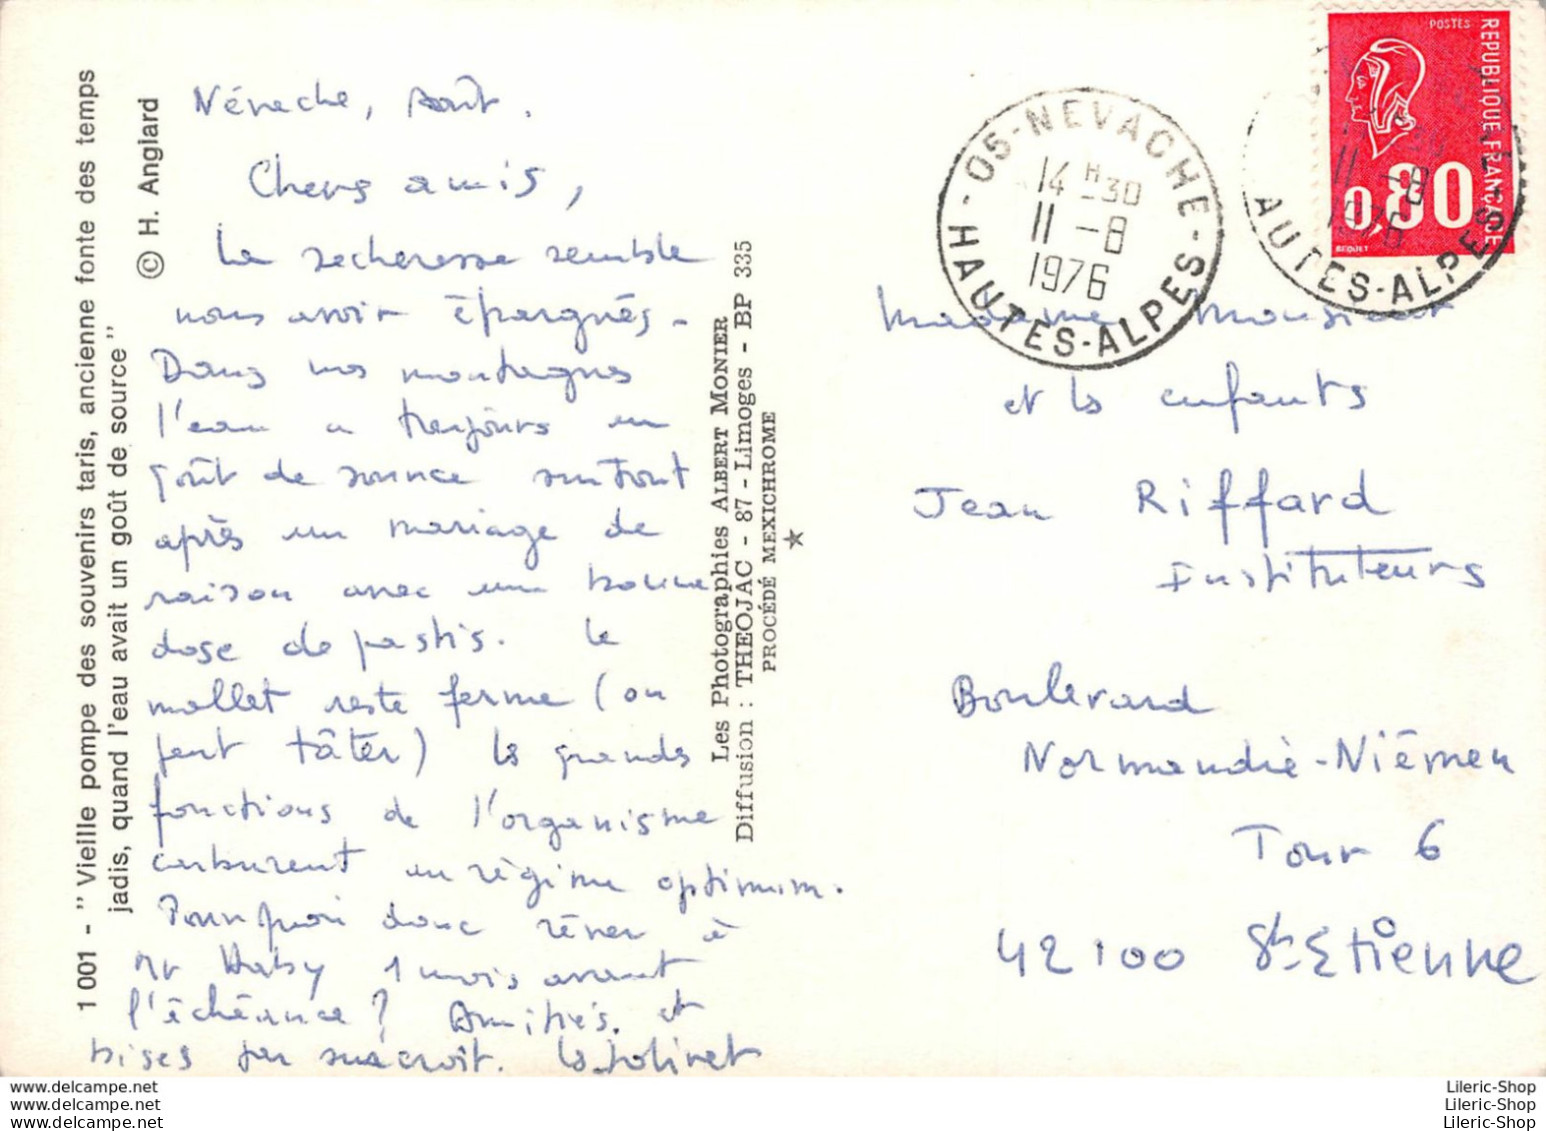 1 001 - " Vieille pompe des souvenirs taris, ancienne fonte des temps
jadis, quand l'eau avait un goût de source "
© H. Anglard
Névache, Août.
Chers amis,
La secheresse semble
nous avoir épargnés.
Dans nos montagnes
l'eau a toujours un
goût de source surtout
après un mariage de
raison avec une bonne
dose de pastis. Le
mollet reste ferme (on
peut tâter) les grandes
fonctions de l'organisme
carburent au régime optimum.
Pourquoi donc rêver à
Mr Haby 1 mois avant
l'échéance ? Amitiés. et
bises par surcroît. Les Jolivet
Les Photographies ALBERT MONIER
Diffusion : THEOJAC - 87 - Limoges - BP 335
PROCÉDÉ MEXICHROME
05-NEVACHE
14 H 30
11 -8
1976
HAUTES-ALPES
POSTES
REPUBLIQUE FRANÇAISE
0,80
BEQUET
11 -8
1976
AUTES-ALPES
Madame Monsieur
et les enfants
Jean Riffard
Instituteurs
Boulevard
Normandie-Niémen
Tour 6
42100 St-Etienne
www.delcampe.net Lileric-Shop
www.delcampe.net Lileric-Shop
www.delcampe.net Lileric-Shop